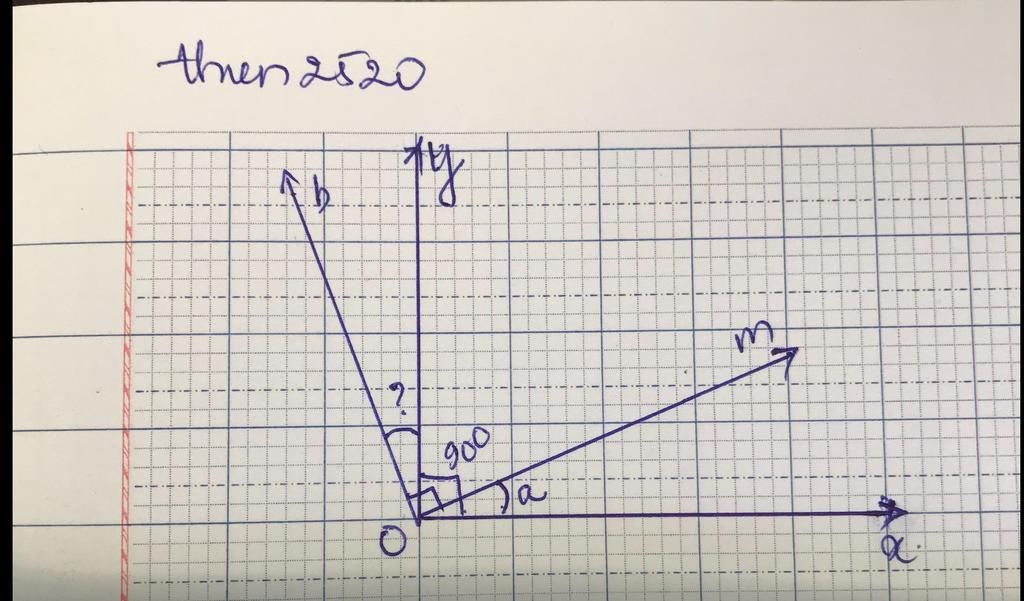 thuen2520
y
b
m
?
90°
a
O
x